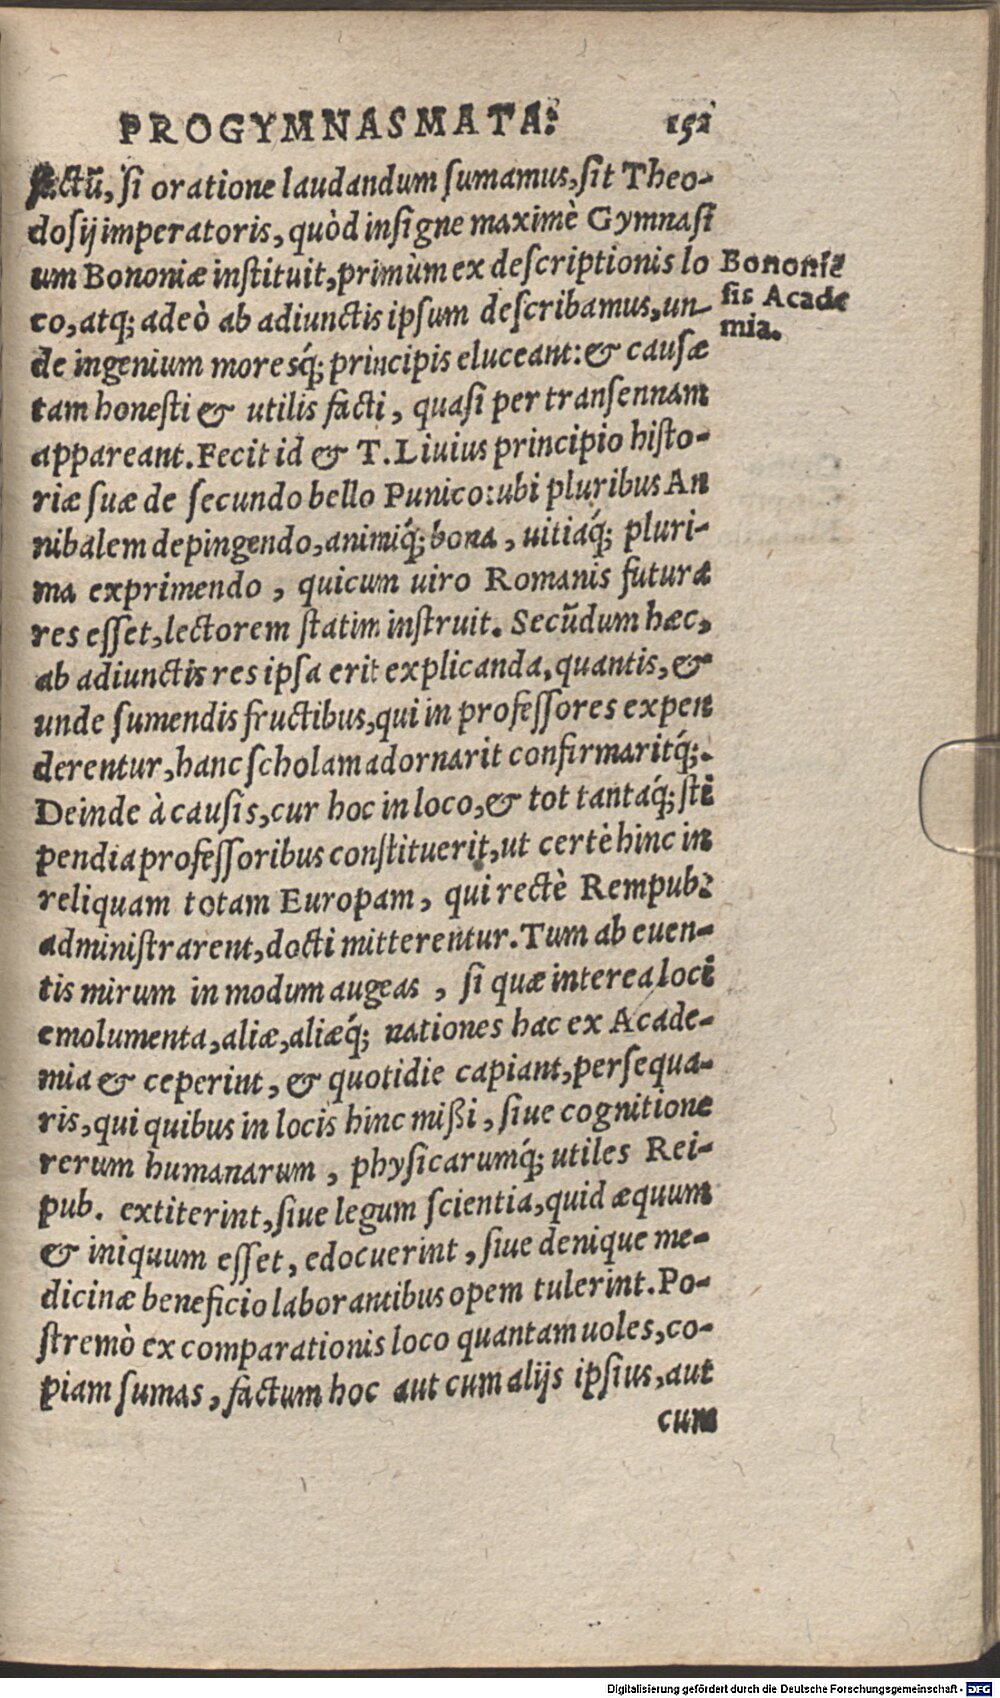 PROGYMNASMATA. 152
factū, si oratione laudandum sumamus, sit Theo-
dosij imperatoris, quòd insigne maximè Gymnasi
um Bononiæ instituit, primùm ex descriptionis lo
co, atq; adeò ab adiunctis ipsum describamus, un-
de ingenium moresq́; principis eluceant: & causæ
tam honesti & utilis facti, quasi per transennam
appareant. Fecit id & T. Liuius principio histo-
riæ suæ de secundo bello Punico: ubi pluribus An
nibalem depingendo, animiq́; bona, uitiaq́; pluri-
ma exprimendo, quicum uiro Romanis futura
res esset, lectorem statim instruit. Secūdum hæc,
ab adiunctis res ipsa erit explicanda, quantis, &
unde sumendis fructibus, qui in professores expen
derentur, hanc scholam adornarit confirmaritq́;.
Deinde à causis, cur hoc in loco, & tot tantaq́; sti
pendia professoribus constituerit, ut certè hinc in
reliquam totam Europam, qui rectè Rempub.
administrarent, docti mitterentur. Tum ab euen-
tis mirum in modum augeas, si quæ interea loci
emolumenta, aliæ, aliæq́; nationes hac ex Acade-
mia & ceperint, & quotidie capiant, persequa-
ris, qui quibus in locis hinc mißi, siue cognitione
rerum humanarum, physicarumq́; utiles Rei-
pub. extiterint, siue legum scientia, quid æquum
& iniquum esset, edocuerint, siue denique me-
dicinæ beneficio laborantibus opem tulerint. Po-
stremò ex comparationis loco quantam uoles, co-
piam sumas, factum hoc aut cum alijs ipsius, aut
cum
Bononiē
sis Acade
mia.
Digitalisierung gefördert durch die Deutsche Forschungsgemeinschaft - DFG